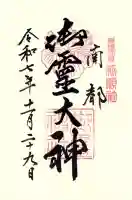 南都
御靈大神
令和七年十一月二十九日